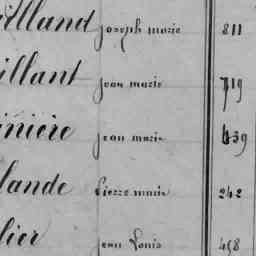 illand joseph marie 811
illant jean marie 719
inière jean marie 439
lande Pierre marie 242
lier jean Louis 498